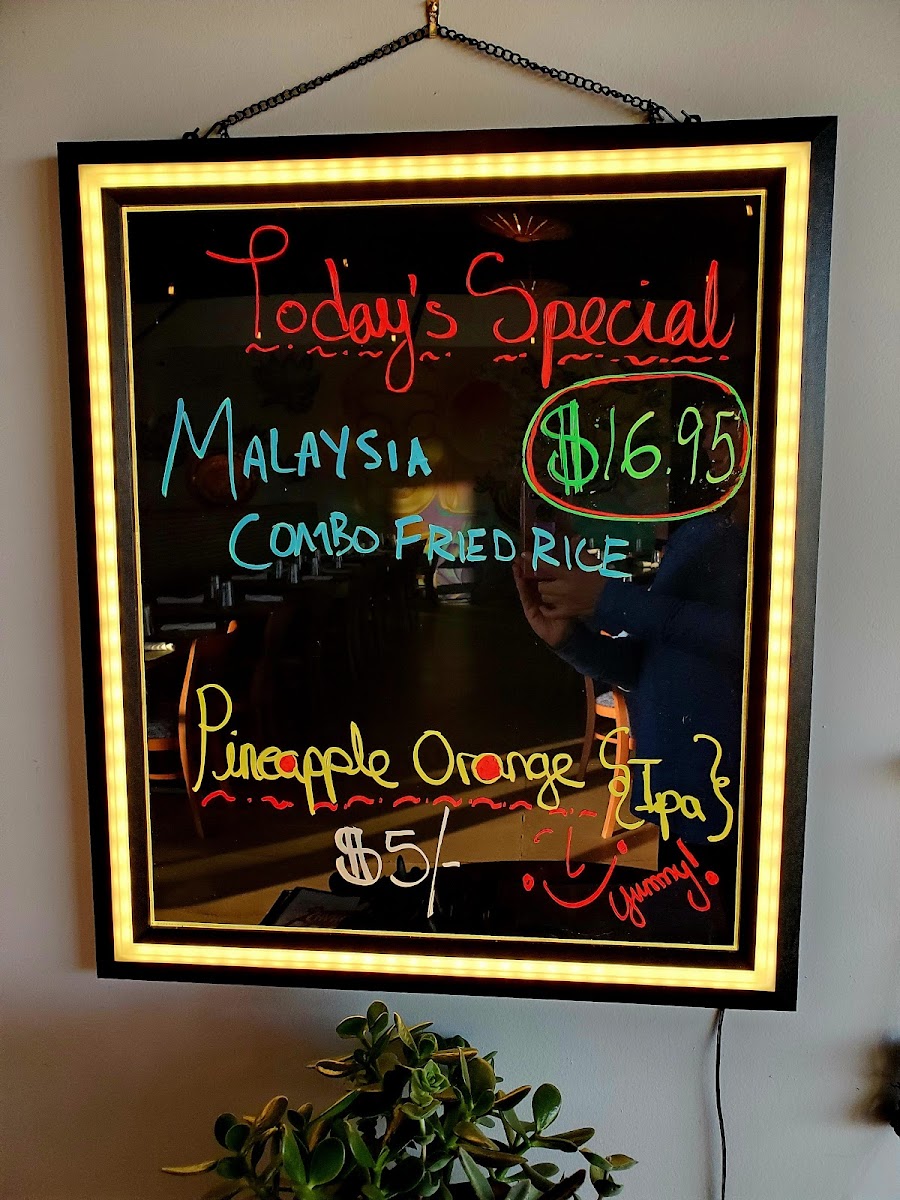 Today's Special
MALAYSIA $16.95
COMBO FRIED RICE
Pineapple Orange {Ipa}
$5/-
yummy!